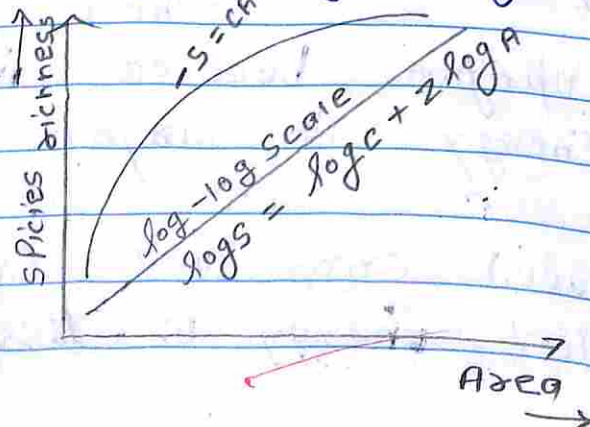 S = CA
sPicies richness
log-log Scale
logs = logc + z logA
Area